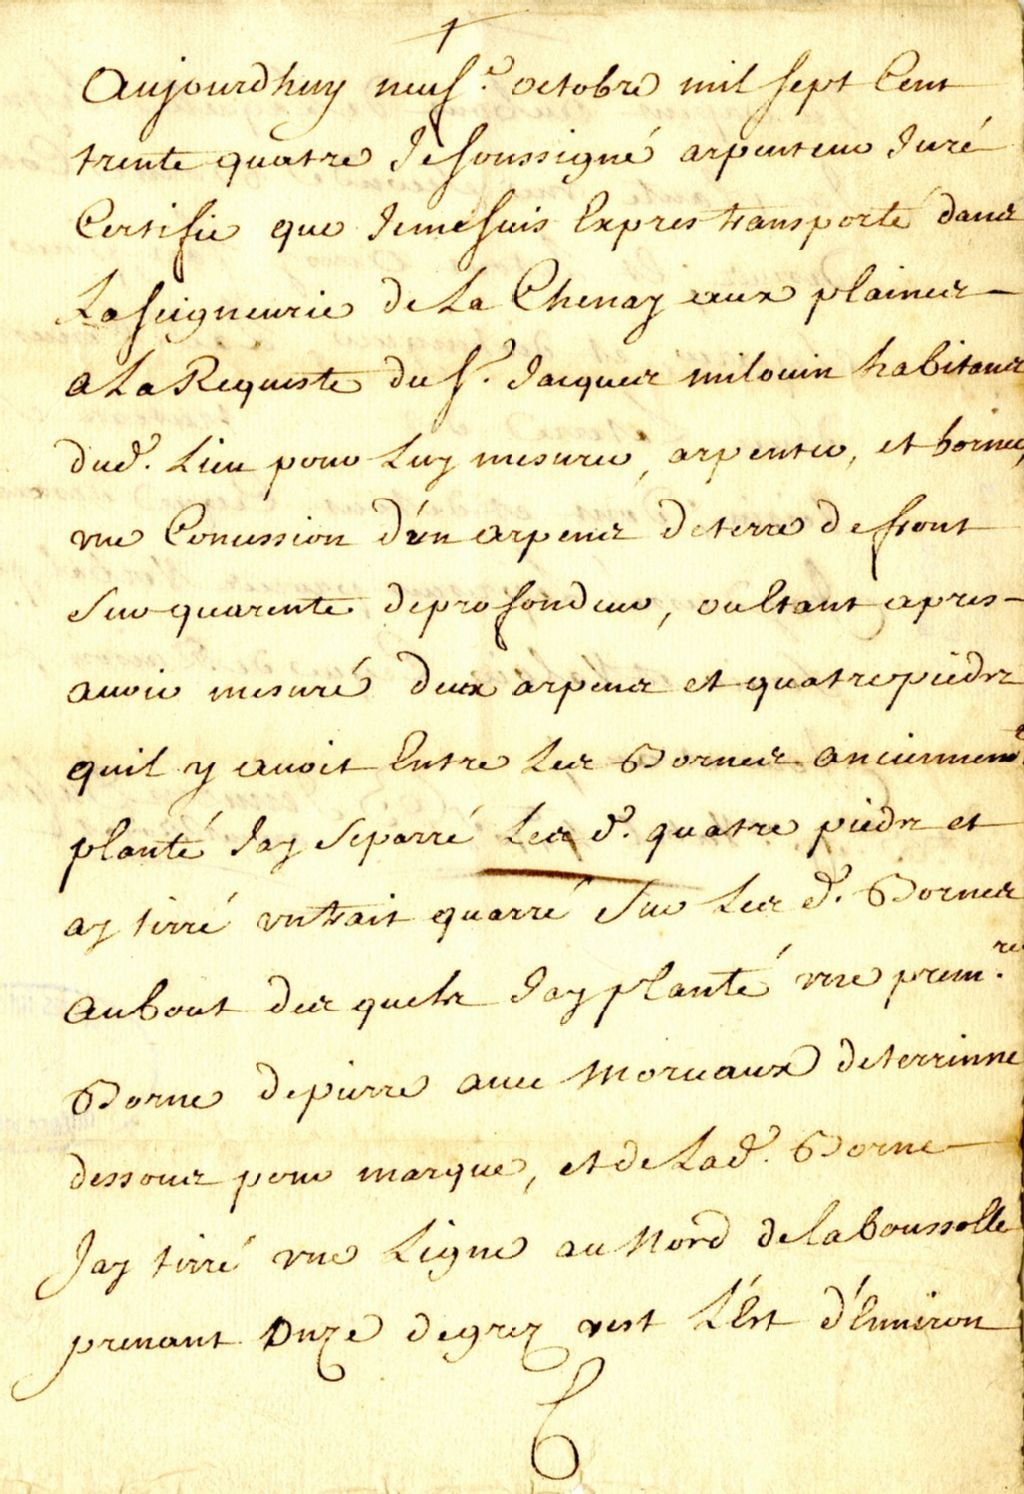 Aujourdhuy neuf.e octobre mil sept Cent
trente quatre Je soussigné arpenteur Juré
Certifie que Jemesuis Expres transporté dans
La seigneurie de La Chenay aux plaines
a La Requeste du Sr. Jacques milouin habitant
dud. Lieu pour Luy mesurer, arpenter, et borner,
vne Concession d'un arpent deterre defront
sur quarente deprofondeur, oultant apres
auoir mesuré deux arpents et quatre pieds
quil y auoit Entre Les Bornes anciennemt
planté Jay separré Les d. quatre pieds et
ay tirré vntrait quarré sur Les d. Bornes
aubout des quels Jay planté vne prem.re
Borne depierre auec Morceaux deterrinne
dessous pour marque, et de Lad. Borne
Jay tirré vne Ligne au Nord de la boussolle
prenant Onze degrez vest L'Est d'Enuiron